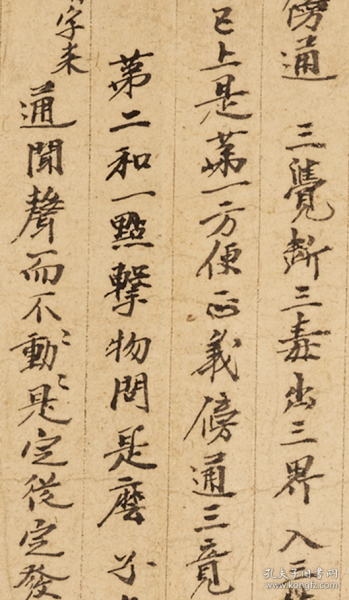 傍通 三覺斷三毒出三界入
已上是第一方便正義傍通三竟
第二和一點擊物問是麼
字来
通聞聲而不動〻是定從定發
孔夫子旧书网